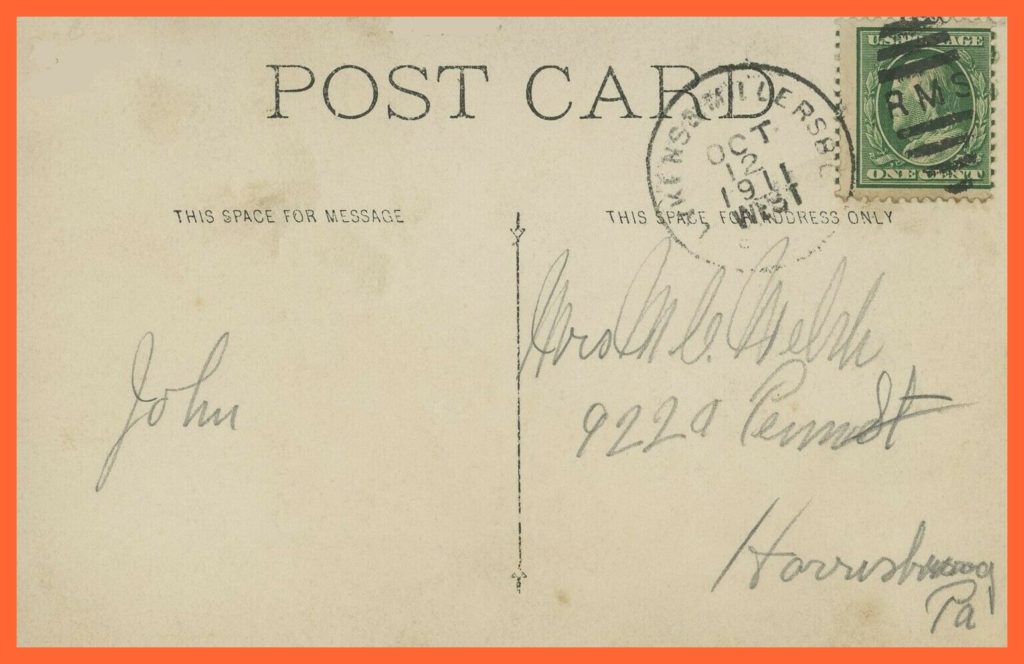 POST CARD
U.S. POSTAGE
RMS
ONE CENT
LYKENS & MILLERSB
OCT
12
1911
WEST
THIS SPACE FOR MESSAGE
THIS SPACE FOR ADDRESS ONLY
John
Mrs M. C. Welsh
922a Penn St
Harrisburg
Pa